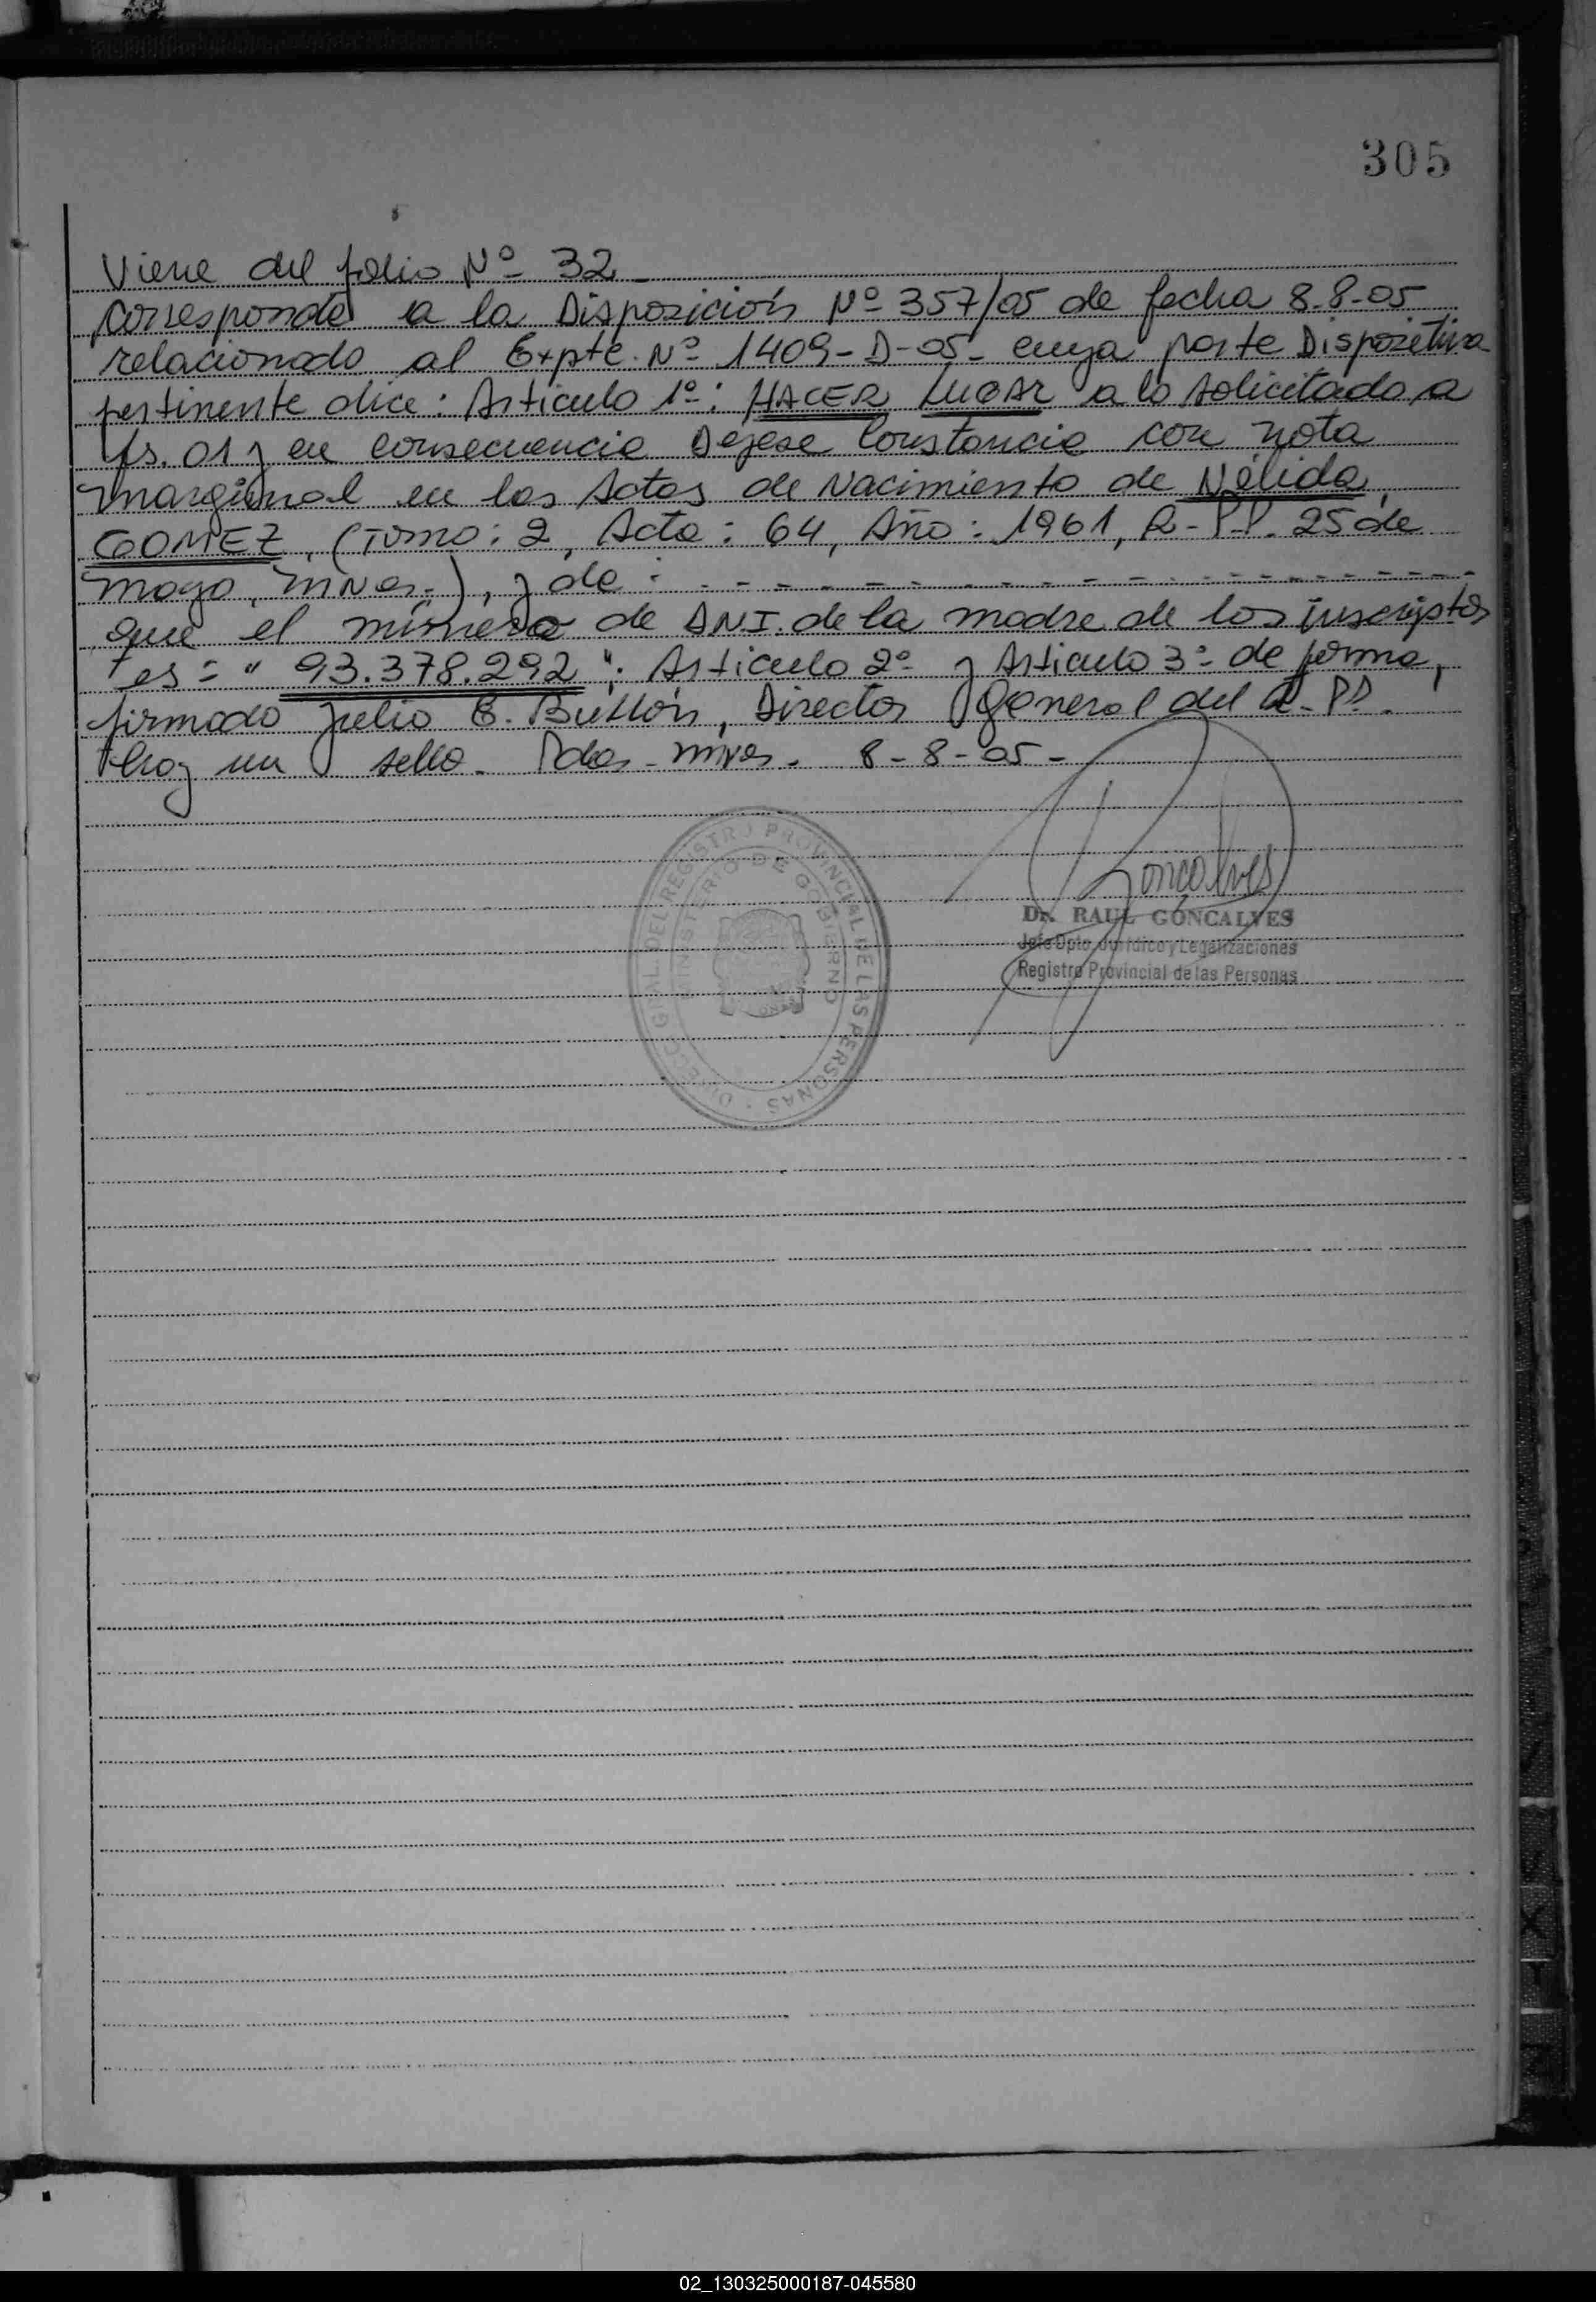 305
Viene del folio Nº 32 -
corresponde a la Disposición Nº 357/05 de fecha 8-8-05
relacionado al Expte. Nº 1409-D-05- cuya parte Dispozitiva
pertinente dice: Articulo 1º: HACER LUGAR a lo solicitado a
fs. 01 y en consecuencia Dejese Constancia con nota
marginal en las Actas de Nacimiento de Nélida
GOMEZ, (Tomo: 2, Acta: 64, Año: 1961, R-P.P. 25 de
mayo, mnes.), y de: - - - - - - - - - - - - - - - - - -
que el número de DNI. de la madre de los inscriptos
es = " 93.378.292 ". Articulo 2º y Articulo 3º de forma,
firmado Julio E. Buttón, Director General del R-PP.
hay un sello. Pdas-mnes. 8-8-05-
Goncalves
DR. RAUL GONCALVES
Jefe Dpto. Jurídico y Legalizaciones
Registro Provincial de las Personas
DIRECC GRAL DEL REGISTRO PROVINCIAL DE LAS PERSONAS
MINISTERIO DE GOBIERNO
02_130325000187-045580